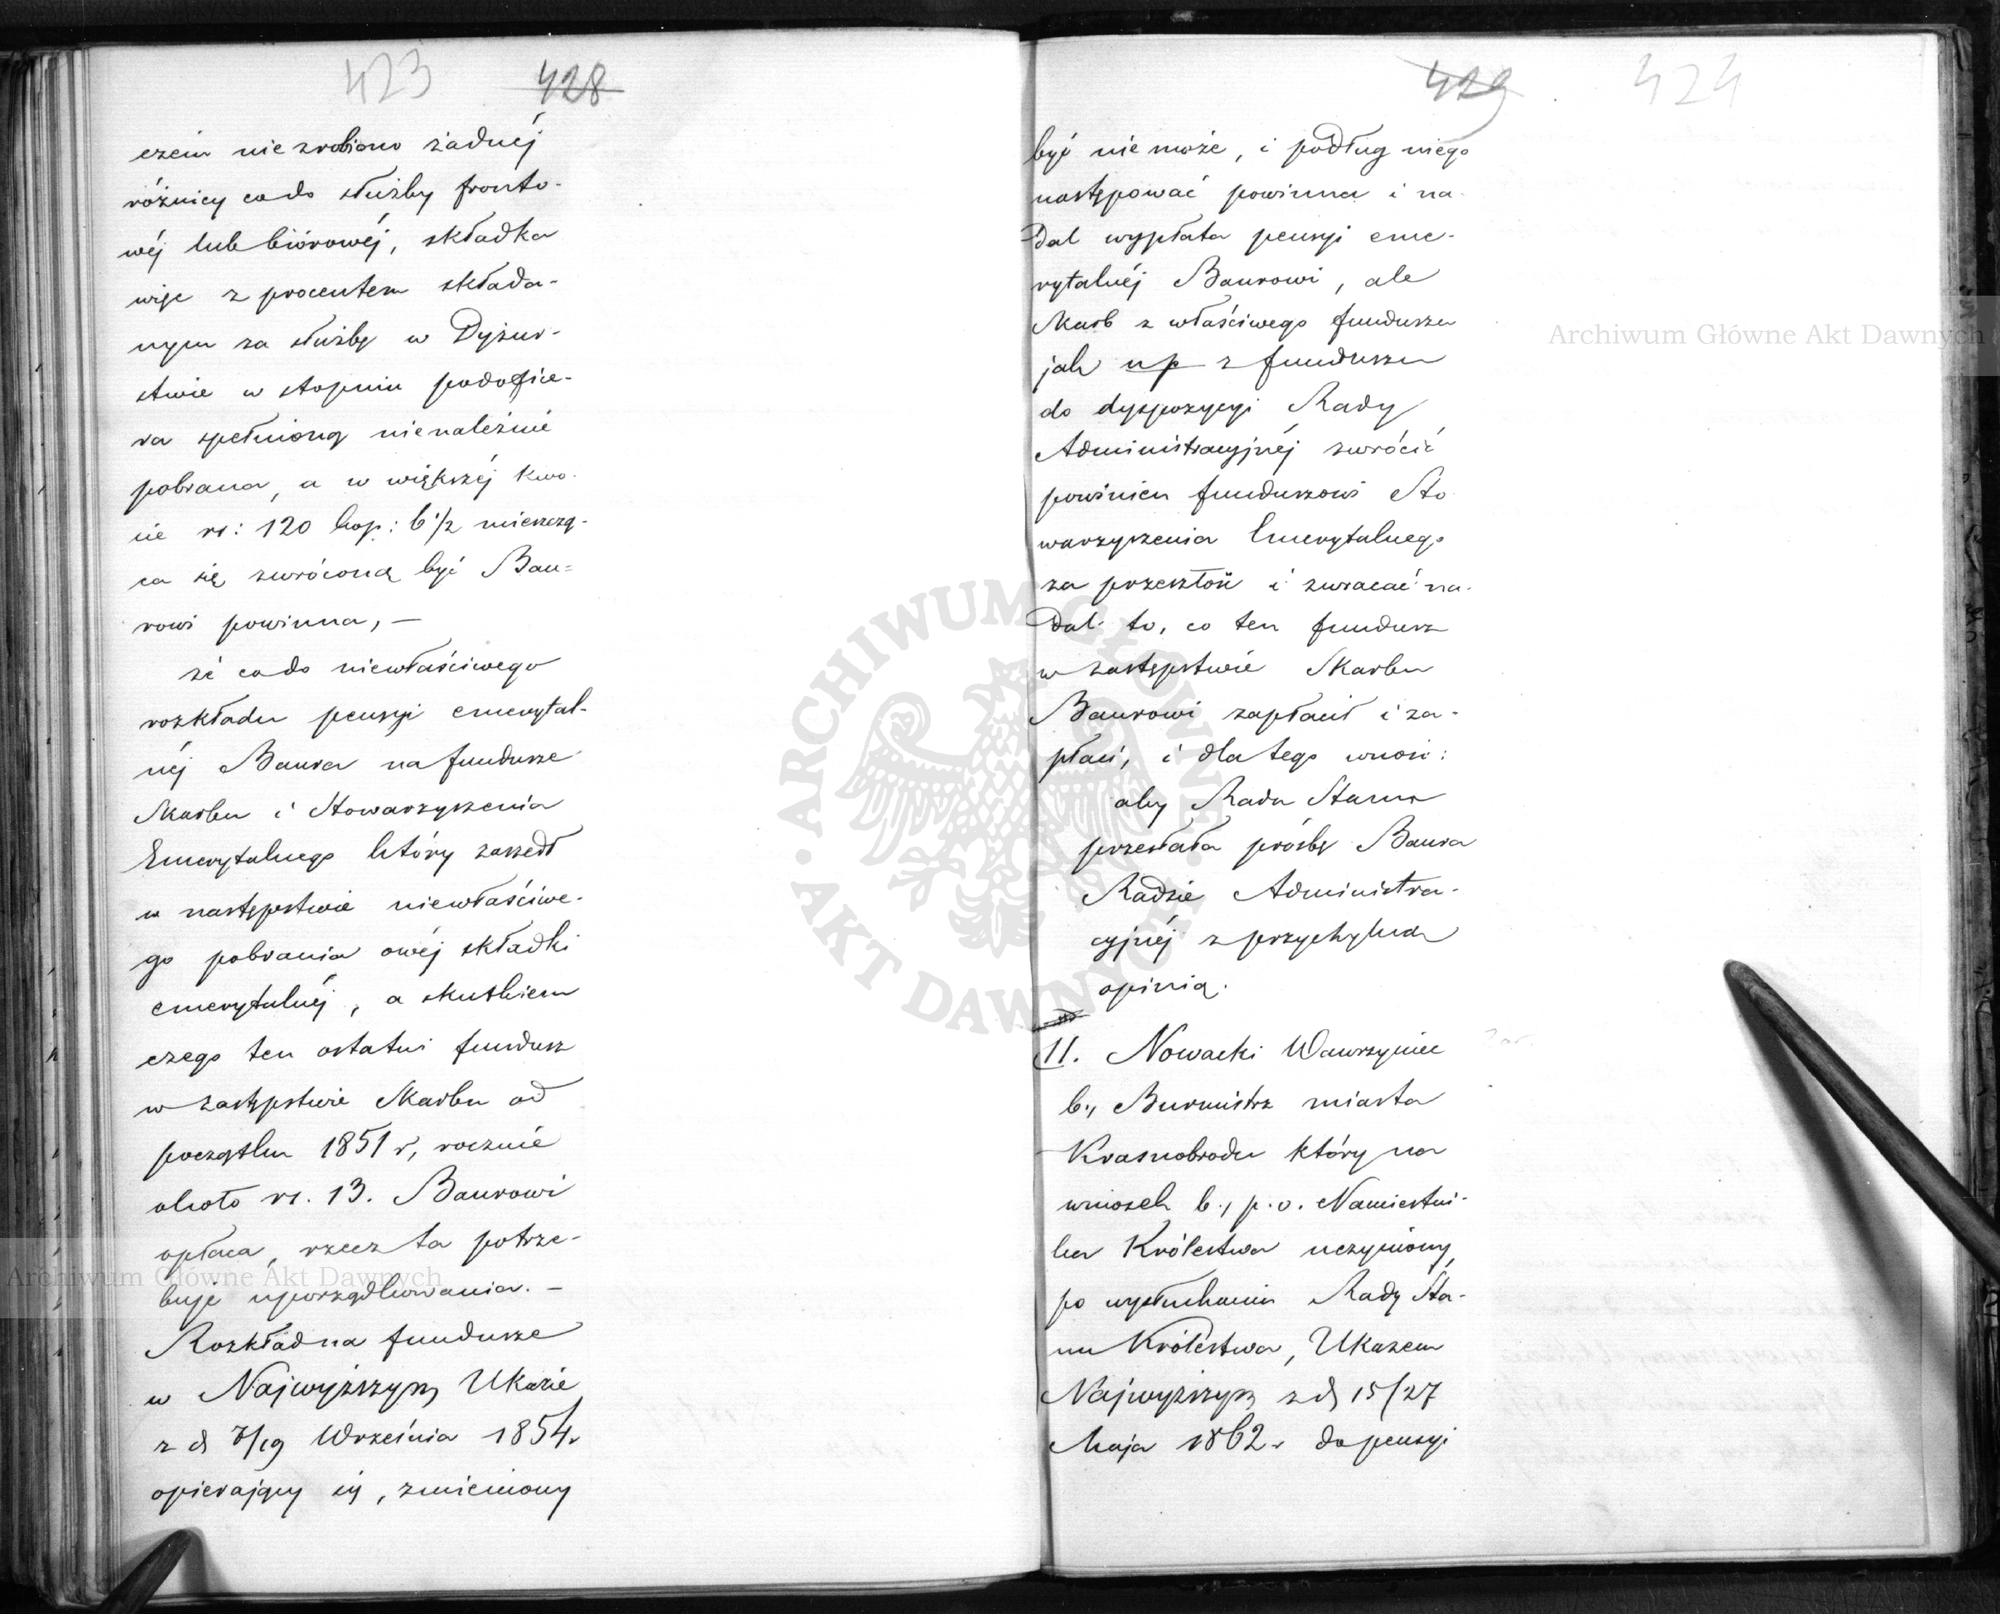 423 428
czém nie zrobiono żadnéj
różnicy co do służby fronto-
wéj lub biórowéj, składka
więc z procentem składa-
nym za służbę w Dyżur-
stwie w stopniu podofice-
ra spełnioną nienależnie
pobrana, a w większéj kwo-
cie rs: 120 kop: 6 1/2 mieszczą-
ca się zwróconą być Bau-
rowi powinna, —
że co do niewłaściwego
rozkładu pensyi emerytal-
néj Baura na fundusze
Skarbu i Stowarzyszenia
Emerytalnego który zaszedł
w następstwie niewłaściwe-
go pobrania owéj składki
emerytalnéj, a skutkiem
czego ten ostatni fundusz
w zastępstwie Skarbu od
początku 1851 r, rocznie
około rs. 13. Baurowi
opłaca, rzecz ta potrze-
buje uporządkowania. —
Rozkład na fundusze
w Najwyższym Ukazie
z d 7/19 Września 1854 r
opierający się, zmieniony
429 424
być nie może, i podług niego
następować powinna i na-
dal wypłata pensyi eme-
rytalnéj Baurowi, ale
Skarb z właściwego funduszu
jak np z funduszu
do dyspozycyi Rady
Administracyjnéj zwrócić
powinien funduszowi Sto
warzyszenia Emerytalnego
za przeszłość i zwracać na-
dal to, co ten fundusz
w zastępstwie Skarbu
Baurowi zapłacił i za-
płaci, i dla tego wnosi:
aby Rada Stanu
przesłała prośbę Baura
Radzie Administra-
cyjnéj z przychylną
opinią.
11. Nowacki Wawrzyniec
b., Burmistrz miasta
Krasnobrodu który na
wniosek b., p. o. Namiestni-
ka Królestwa uczyniony,
po wysłuchaniu Rady Sta-
nu Królestwa, Ukazem
Najwyższym z d 15/27
Maja 1862 r do pensyi
Archiwum Główne Akt Dawnych
Archiwum Główne Akt Dawnych
ARCHIWUM GŁÓWNE · AKT DAWNYCH ·